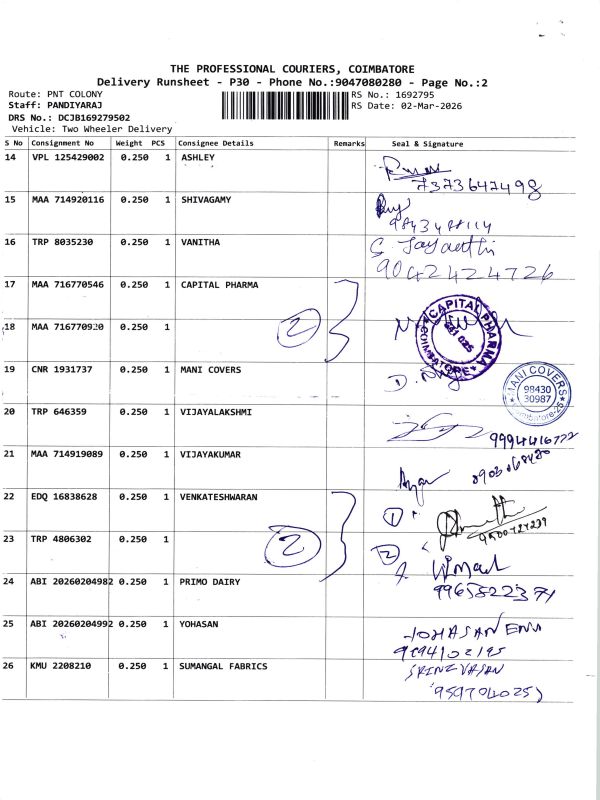 THE PROFESSIONAL COURIERS, COIMBATORE
Delivery Runsheet - P30 - Phone No.:9047080280 - Page No.:2
Route: PNT COLONY RS No.: 1692795
Staff: PANDIYARAJ RS Date: 02-Mar-2026
DRS No.: DCJB169279502
Vehicle: Two Wheeler Delivery
S No Consignment No Weight PCS Consignee Details Remarks Seal & Signature
14 VPL 125429002 0.250 1 ASHLEY
7373647498
15 MAA 714920116 0.250 1 SHIVAGAMY
9843488114
16 TRP 8035230 0.250 1 VANITHA
G. Jayanthi
9042424726
17 MAA 716770546 0.250 1 CAPITAL PHARMA
CAPITAL PHARMA
COIMBATORE
641 025
18 MAA 716770920 0.250 1
2
19 CNR 1931737 0.250 1 MANI COVERS
MANI COVERS
98430
30987
Coimbatore-25
20 TRP 646359 0.250 1 VIJAYALAKSHMI
9994416772
21 MAA 714919089 0.250 1 VIJAYAKUMAR
22 EDQ 16838628 0.250 1 VENKATESHWARAN
1
9500727239
23 TRP 4806302 0.250 1
2
2
24 ABI 20260204982 0.250 1 PRIMO DAIRY
25 ABI 20260204992 0.250 1 YOHASAN
9894102195
26 KMU 2208210 0.250 1 SUMANGAL FABRICS
SRINIVASAN